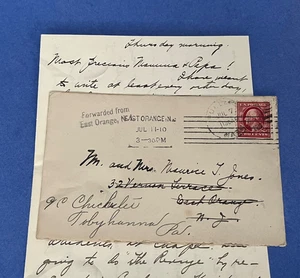 Thursday morning.
Most Precious Mamma & Papa!
I have meant
to write at least every other day,
Forwarded from
East Orange, N.
EAST ORANGE N.J.
JUL 11-10
3-30PM
Mr. and Mrs. Maurice T. Jones.
32 Vernon Terrace
East Orange
N. J.
c/o Chickslee
Tobyhanna
Pa.
going to do "The Revenge" by re-